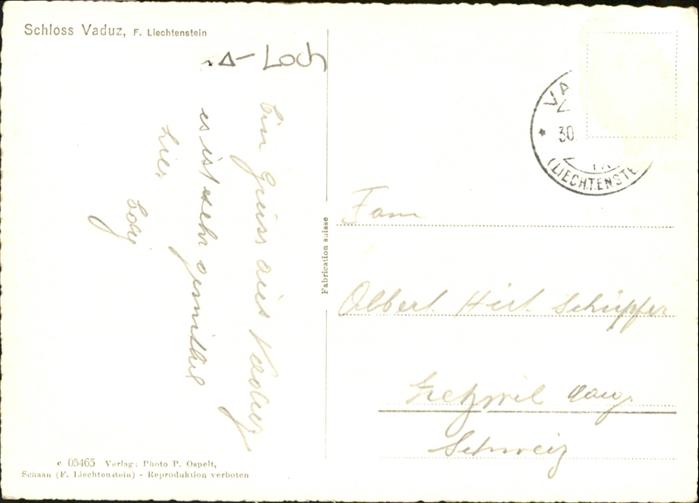 Schloss Vaduz, F. Liechtenstein
Loch
Ein Gruss aus Vaduz
es ist sehr gemütlich
hier.
Edy
Fabrication suisse
30.
(LIECHTENSTE
Fam
Albert Hirt Schüpfer
Aarg.
Schweiz
c 05465 Verlag: Photo P. Ospelt,
Schaan (F. Liechtenstein) - Reproduktion verboten